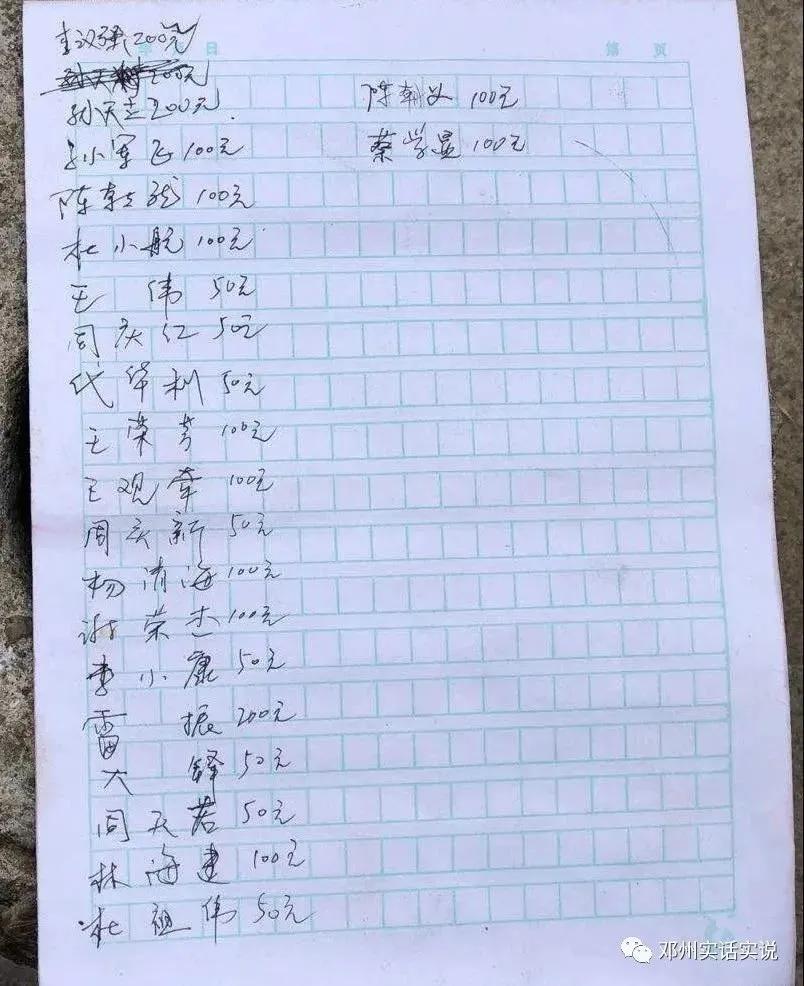 李汉强200元
日
第 页
孙天志200元
陈朝义 100元
孙小军 100元
蔡学显 100元
陈朝龙 100元
杜小航 100元
王 伟 50元
周庆红 50元
代华利 50元
王荣芳 100元
王观幸 100元
周庆新 50元
杨清海 100元
谢荣杰 100元
李小康 50元
雷 振 200元
大 锋 50元
周天君 50元
林海建 100元
杜祖伟 50元
邓州实话实说